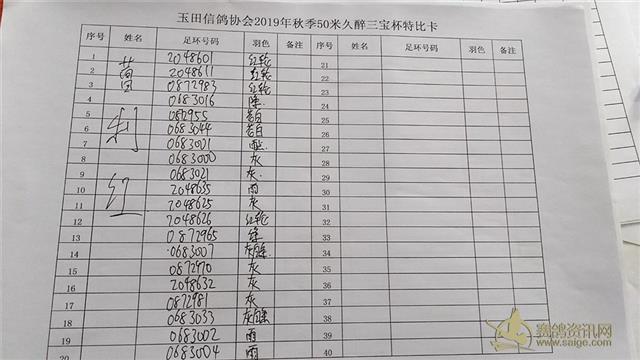 玉田信鸽协会2019年秋季50米久醉三宝杯特比卡
序号 姓名 足环号码 羽色 备注 序号 姓名 足环号码 羽色 备注
1 2048601 红轮 21
2 苗 2048611 红轮 22
3 0872983 红轮 23
4 0683016 24
5 0812955 25
6 利 0683044 26
7 0683001 27
8 0683000 灰 28
9 0683021 灰 29
10 红 2048635 雨 30
11 2048625 灰 31
12 2048626 红轮 32
13 0872965 绛 33
14 0683007 34
15 0872970 灰 35
16 2048632 灰 36
17 0872981 灰 37
18 0683033 38
19 0683002 雨 39
20 0683004 雨 40
赛鸽资讯网
www.saige.com